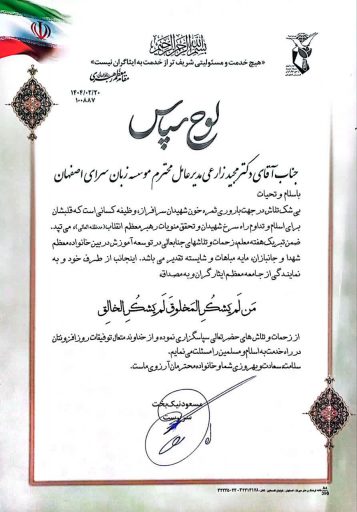 بسم الله الرحمن الرحیم
«هیچ خدمت و مسئولیتی شریف تر از خدمت به ایثاگران نیست»
۱۴۰۴/۰۲/۲۰
۱۰۰۸۸۷
لوح سپاس
جناب آقای دکتر مجید زارعی مدیر عامل محترم موسسه زبان سرای اصفهان
با سلام و تحیات
بی شک تلاش در جهت باروری ثمره خون شهیدان سرافراز، وظیفه کسانی است که قلبشان
برای اسلام و تداوم راه سرخ شهیدان و تحقق منویات رهبر معظم انقلاب (مدظله العالی) می تپد.
ضمن تبریک هفته معلم، زحمات و تلاشهای جنابعالی در توسعه آموزش در بین خانواده معظم
شهدا و جانبازان، مایه مباهات و شایسته تقدیر می باشد. اینجانب از طرف خود و به
نمایندگی از جامعه معظم ایثارگران و به مصداق
مَن لَم یَشکُرِ المَخلوق لَم یَشکُرِ الخالِق
از زحمات و تلاش های حضرتعالی سپاسگزاری نموده و از خداوند متعال توفیقات روز افزونتان
در راه خدمت به اسلام و مسلمین را مسئلت می نمایم.
سلامت، سعادت و بهروزی شما و خانواده محترمان آرزوی ماست.
مسعود نیک بخت
سرپرست